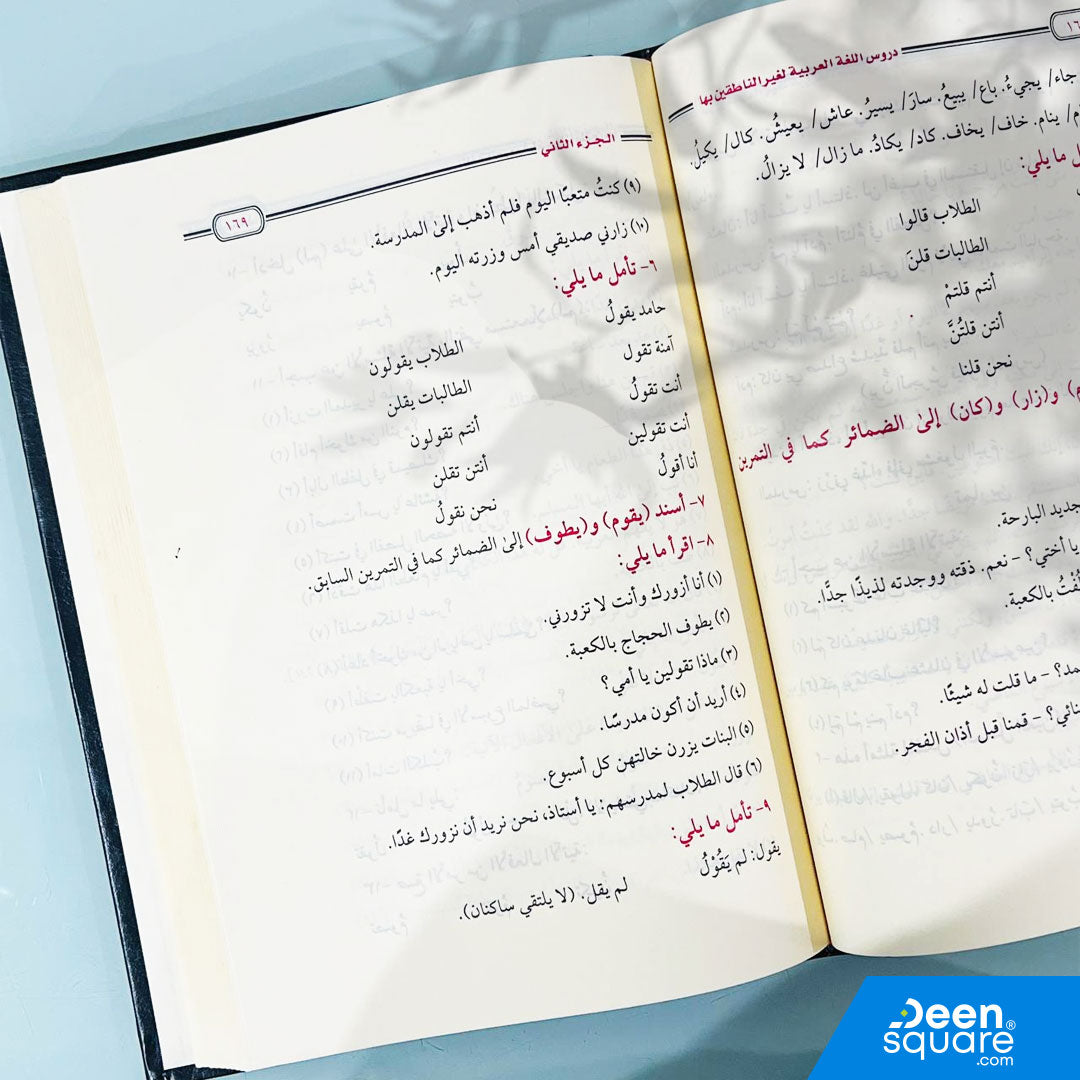 دروس اللغة العربية لغير الناطقين بها
جاء/ يجيءُ. باع/ يبيعُ. سارَ/ يسيرُ. عاش/ يعيشُ. كال/ يكيلُ.
ينام. خاف/ يخاف. كاد/ يكادُ. ما زال/ لا يزالُ.
ما يلي:
الطلاب قالوا
الطالبات قلنَ
أنتم قلتمْ
أنتن قلتُنَّ
نحن قلنا
و(زار) و(كان) إلىٰ الضمائر كما في التمرين
جديد البارحة.
يا أختي؟ - نعم. ذقته ووجدته لذيذًا جدًّا.
بالكعبة.
؟ - ما قلت له شيئًا.
؟ - قمنا قبل أذان الفجر.
الجزء الثاني
١٦٩
(٩) كنتُ متعبًا اليوم فلم أذهب إلىٰ المدرسة.
(١٠) زارني صديقي أمس وزرته اليوم.
٦- تأمل ما يلي:
حامد يقولُ الطلاب يقولون
آمنة تقول الطالبات يقلن
أنت تقولُ أنتم تقولون
أنت تقولين أنتن تقلن
أنا أقولُ نحن نقولُ
٧- أسند (يقوم) و(يطوف) إلىٰ الضمائر كما في التمرين السابق.
٨- اقرأ ما يلي:
(١) أنا أزورك وأنت لا تزورني.
(٢) يطوف الحجاج بالكعبة.
(٣) ماذا تقولين يا أمي؟
(٤) أريد أن أكون مدرسًا.
(٥) البنات يزرن خالتهن كل أسبوع.
(٦) قال الطلاب لمدرسهم: يا أستاذ، نحن نريد أن نزورك غدًا.
٩- تأمل ما يلي:
يقول: لم يَقُوْلُ لم يقل. (لا يلتقي ساكنان).
Deen®
square
.com